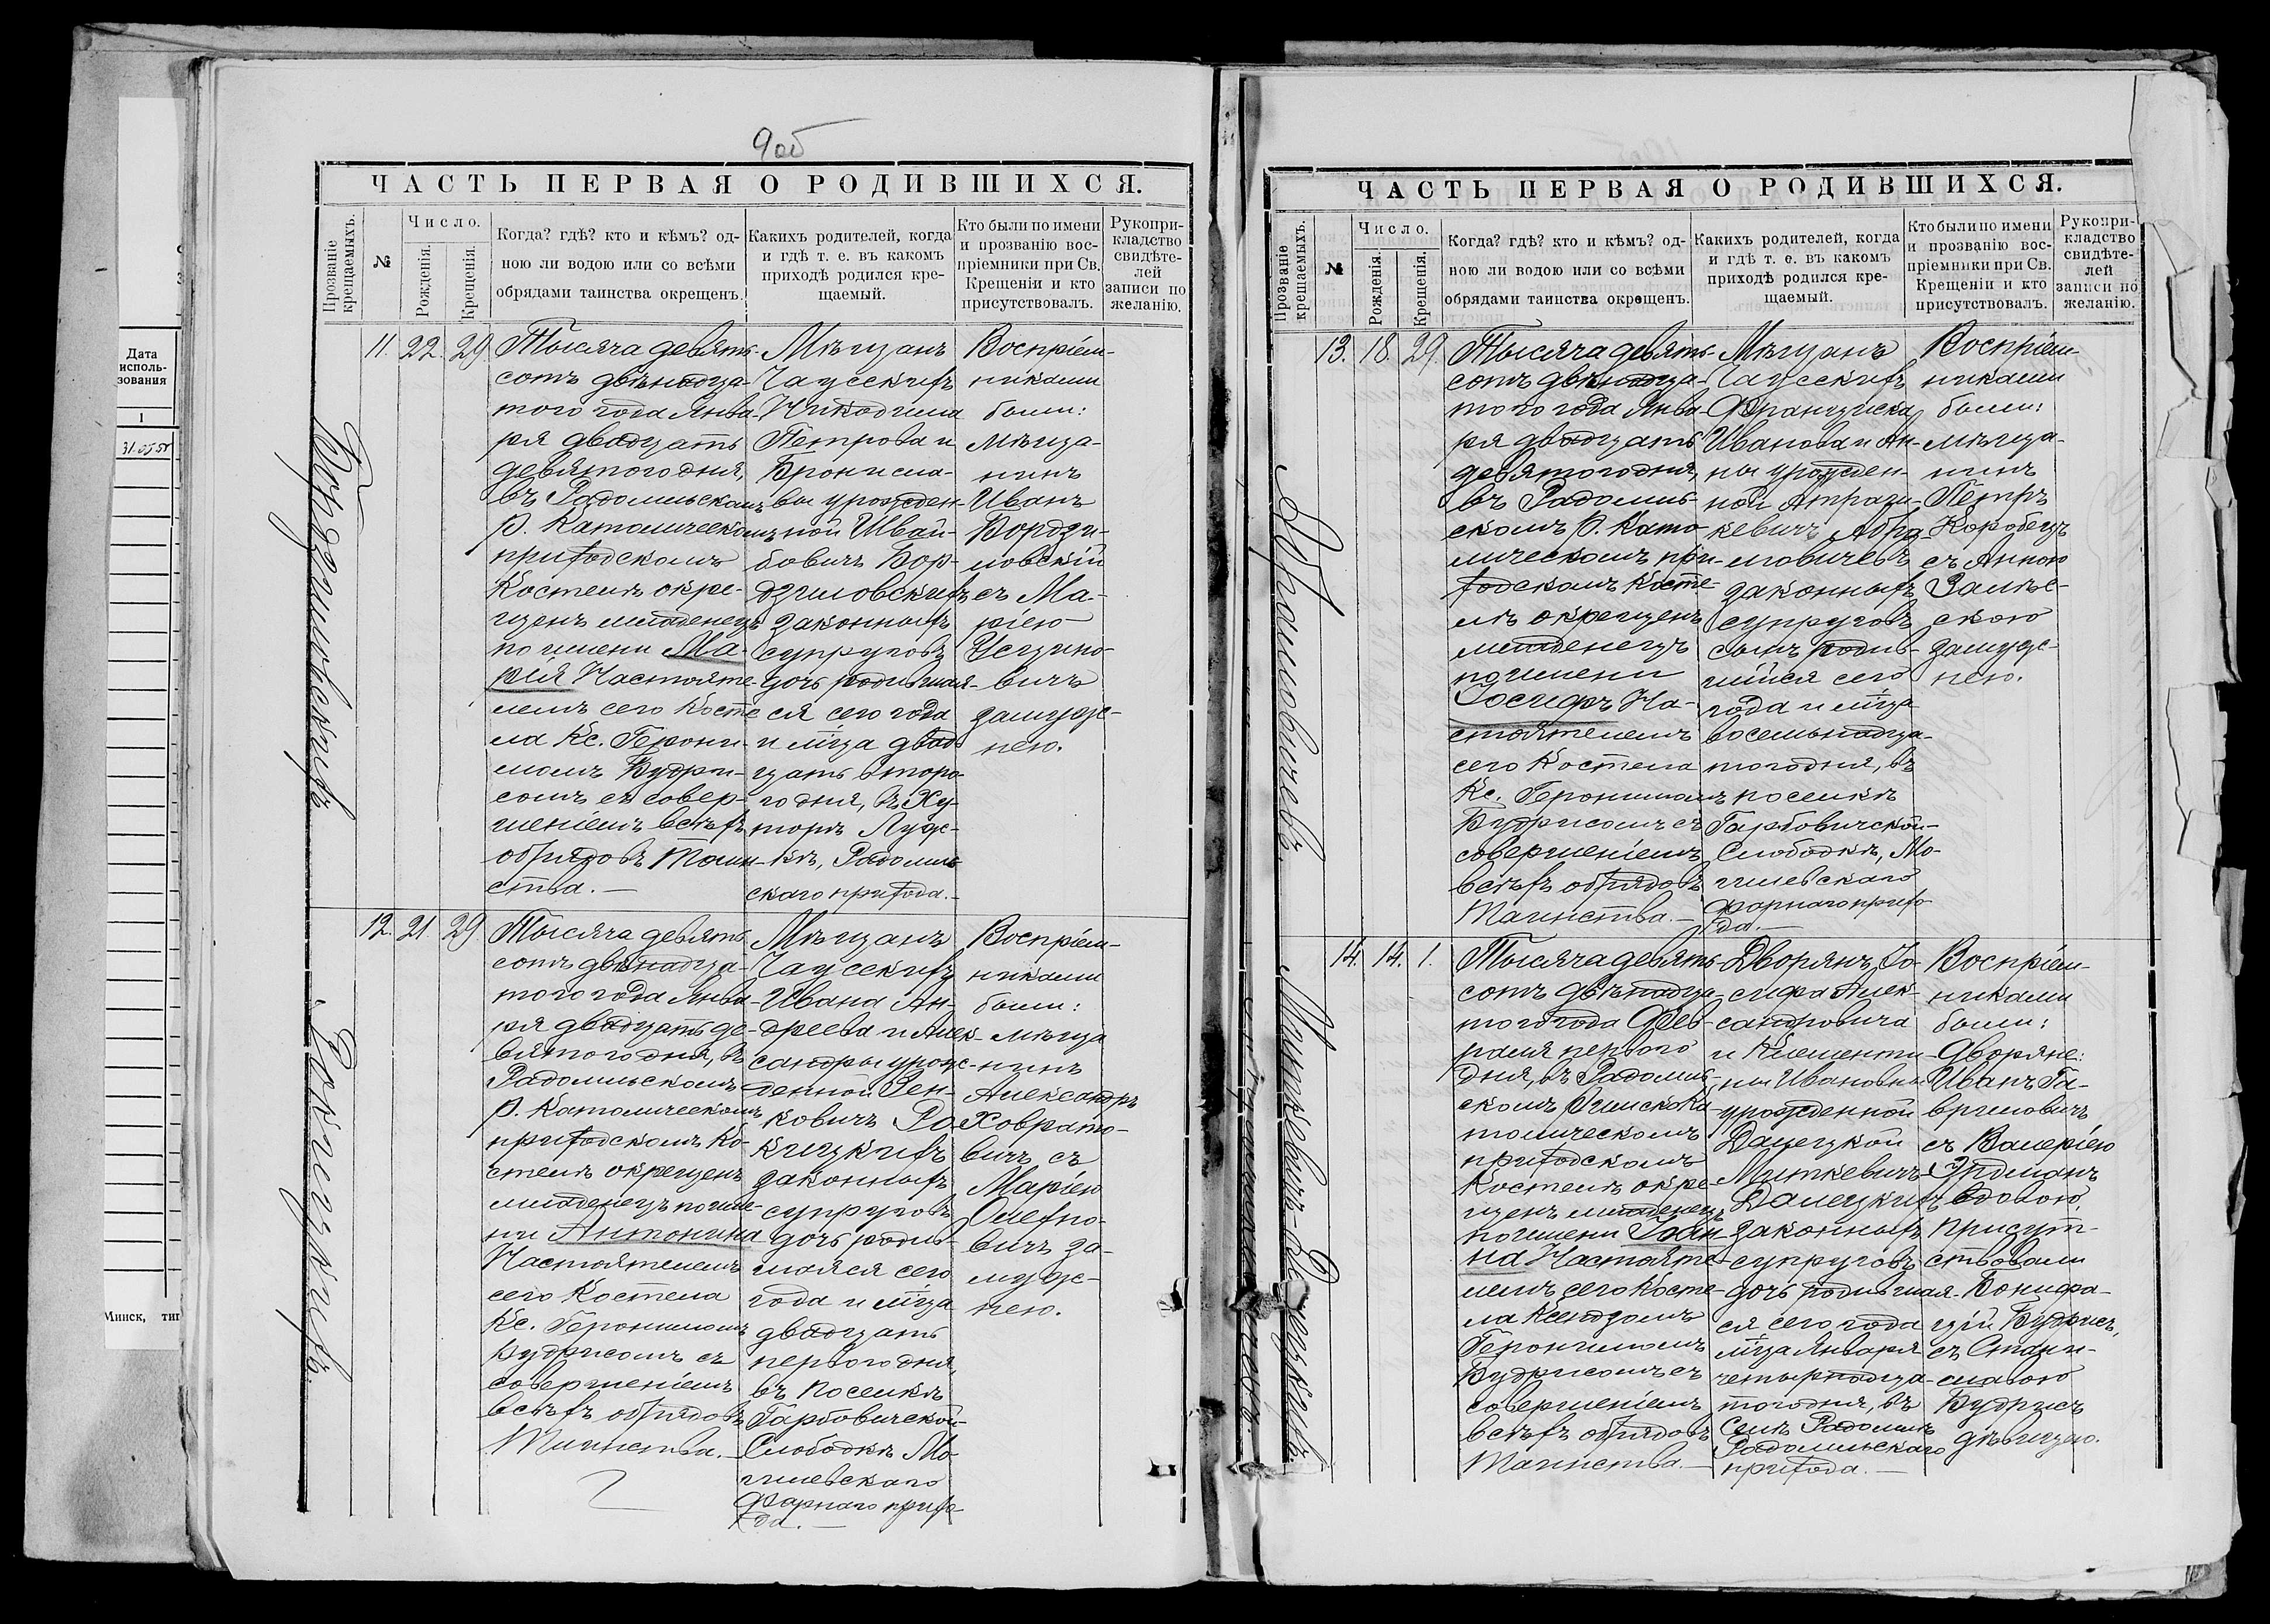 Дата
исполь-
зования
1
31.05.51
Минск, тип
9об
ЧАСТЬ ПЕРВАЯ О РОДИВШИХСЯ.
Прозваніе
крещаемыхъ.
№
Число.
Рожденія.
Крещенія.
Когда? гдѣ? кто и кѣмъ? од-
ною ли водою или со всѣми
обрядами таинства окрещенъ.
Какихъ родителей, когда
и гдѣ т. е. въ какомъ
приходѣ родился кре-
щаемый.
Кто были по имени
и прозванію вос-
пріемники при Св.
Крещеніи и кто
присутствовалъ.
Рукопри-
кладство
свидѣте-
лей
записи по
желанію.
Бордзиловскихъ
11.
22.
29.
Тысяча девять-
сотъ двѣнадца-
того года Янва-
ря двадцать
девятого дня,
въ Радомльскомъ
Р. Католическомъ
приходскомъ
Костелѣ окре-
щенъ младенецъ
по имени Ма-
рія Настояте-
лемъ сего Косте-
ла Кс. Герони-
момъ Будри-
сомъ съ совер-
шеніемъ всѣхъ
обрядовъ Таин-
ства.—
Мѣщанъ
Чаусскихъ
Никодима
Петрова и
Брониса-
вы урожден-
ной Ивай-
бовичъ Бор-
дзиловскихъ
законныхъ
супруговъ
дочь родившая-
ся сего года
и м͠ца двад-
цать второ-
го дня, въ Ху-
торѣ Луж-
кѣ, Радомль-
скаго прихода.—
Воспріем-
никами
были:
мѣща-
нинъ
Иванъ
Бордзи-
ловскій
съ Ма-
ріею
замуж-
нею.
Рокицкихъ.
12.
21.
29.
Тысяча девять-
сотъ двѣнадца-
того года Янва-
ря двадцать де-
вятого дня, въ
Радомльскомъ
Р. Католическомъ
приходскомъ Ко-
стелѣ окрещенъ
младенецъ по име-
ни Антонина
Настоятелемъ
сего Костела
Кс. Геронимомъ
Будрисомъ съ
совершеніемъ
всѣхъ обрядовъ
Таинства.—
Мѣщанъ
Чаусскихъ
Ивана Ан-
дреева и Алек-
сандры урож-
денной Зен-
ковичъ Ро-
кицкихъ
законныхъ
супруговъ
дочь родив-
шаяся сего
года и м͠ца
двадцать
перваго дня,
въ поселкѣ
Гарбовичской-
Слободкѣ Мо-
гилевскаго
Фарнаго прихо-
да.—
Воспріем-
никами
были:
мѣща-
нинъ
Александръ
Ховрато-
вичъ съ
Маріею
Олехно-
вичъ за-
муж-
нею.
ЧАСТЬ ПЕРВАЯ О РОДИВШИХСЯ.
Прозваніе
крещаемыхъ.
№
Число.
Рожденія.
Крещенія.
Когда? гдѣ? кто и кѣмъ? од-
ною ли водою или со всѣми
обрядами таинства окрещенъ.
Какихъ родителей, когда
и гдѣ т. е. въ какомъ
приходѣ родился кре-
щаемый.
Кто были по имени
и прозванію вос-
пріемники при Св.
Крещеніи и кто
присутствовалъ.
Рукопри-
кладство
свидѣте-
лей
записи по
желанію.
Абрамовичевъ.
13.
18.
29.
Тысяча девять-
сотъ двѣнадца-
того года Янва-
ря двадцать
девятого дня,
въ Радомль-
скомъ Р. Като-
лическомъ при-
ходскомъ Косте-
лѣ окрещенъ
младенецъ
по имени
Іосифъ На-
стоятелемъ
сего Костела
Кс. Геронимомъ
Будрисомъ съ
совершеніемъ
всѣхъ обрядовъ
Таинства.—
Мѣщанъ
Чаусскихъ
Франциска
Иванова и Ан-
ны урожден-
ной Атрази-
кевичъ Абра-
мовичевъ
законныхъ
супруговъ
сынъ родив-
шійся сего
года и м͠ца
восемьнадца-
того дня, въ
поселкѣ
Гарбовичской-
Слободкѣ, Мо-
гилевскаго
Фарнаго прихо-
да.—
Воспріем-
никами
были:
мѣща-
нинъ
Петръ
Коробецъ
съ Анною
Залѣс-
скою
замуж-
нею.
Миткевичъ-Далецкихъ.
14.
14.
1.
Тысяча девять-
сотъ двѣнадца-
того года Фев-
раля перваго
дня, въ Радомль-
скомъ Римско Ка-
толическомъ
приходскомъ
Костелѣ окре-
щенъ младенецъ
по имени Іоан-
на Настояте-
лемъ сего Косте-
ла Ксендзомъ
Геронимомъ
Будрисомъ съ
совершеніемъ
всѣхъ обрядовъ
Таинства.—
Дворянъ Іо-
сифа Алек-
сандровича
и Клементи-
ны Ивановны
урожденной
Далецкой
Миткевичъ-
Далецкихъ
законныхъ
супруговъ
дочь родившая-
ся сего года
м͠ца Января
четырнадца-
того дня, въ
Селѣ Радомлѣ
Радомльскаго
прихода.—
Воспріем-
никами
были:
Дворяне:
Иванъ Га-
вриловичъ
съ Валеріею
Эрдманъ
вдовою.
Присут-
ствовали
Бонифа-
цій Будрисъ,
съ Стани-
славою
Будрисъ
дѣвицею.